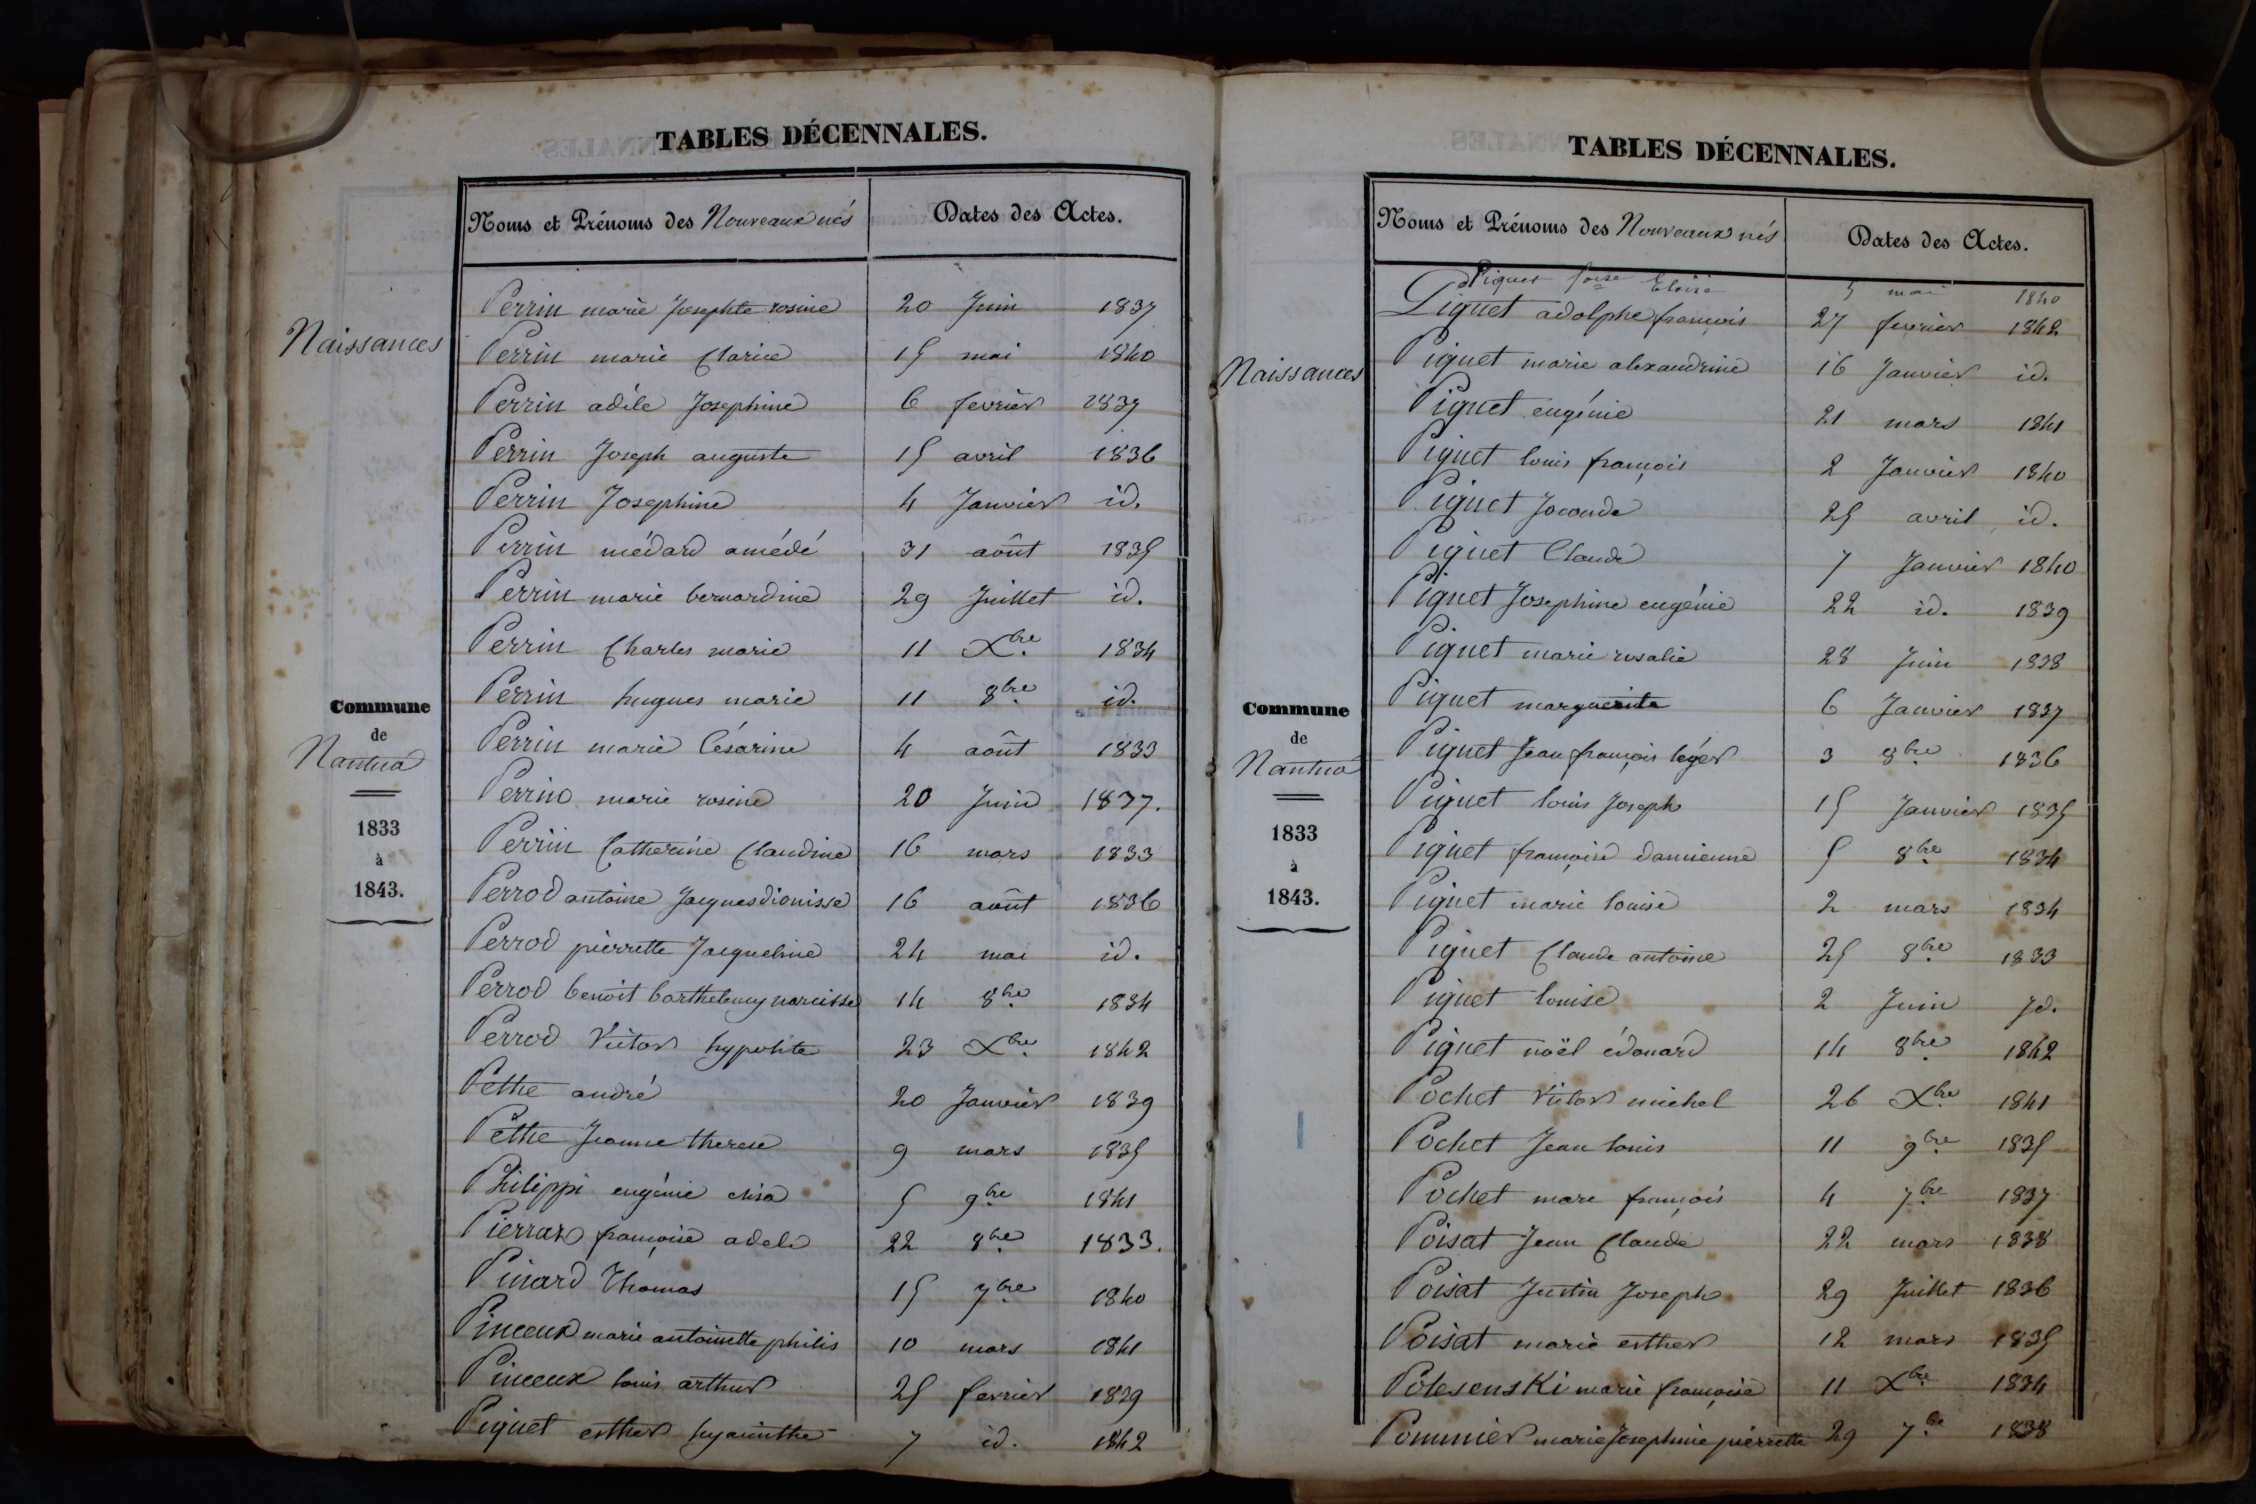 TABLES DÉCENNALES.
Noms et Prénoms des Nouveaux nés Dates des Actes.
Naissances
Commune
de
Nantua
1833
à
1843.
Perrin marie Josephte rosine 20 Juin 1837
Perrin marie Clarice 15 mai 1840
Perrin adéle Josephine 6 fevrier 1837
Perrin Joseph auguste 15 avril 1836
Perrin Josephine 4 Janvier id.
Perrin médard amédé 31 août 1835
Perrin marie bernardine 29 Juillet id.
Perrin Charles marie 11 Xbre 1834
Perrin hugues marie 11 8bre id.
Perrin marie Césarine 4 août 1833
Perrin marie rosine 20 Juin 1837.
Perrin Catherine Claudine 16 mars 1833
Perrod antoine Jacques dionisse 16 août 1836
Perrod pierrette Jacqueline 24 mai id.
Perrod benoit barthelemy narcisse 14 8bre 1834
Perrod Victor hypolite 23 Xbre 1842
Pethe andré 20 Janvier 1839
Pethe Jeanne therese 9 mars 1835
Philippi eugénie elisa 5 9bre 1841
Pierrax françoise adele 22 8bre 1833.
Pinard Thomas 15 7bre 1840
Pinceux marie antoinette philis 10 mars 1841
Pinceux louis arthur 25 fevrier 1839
Piquet esther hyacinthe 7 id. 1842
TABLES DÉCENNALES.
Noms et Prénoms des Nouveaux nés Dates des Actes.
Naissances
Commune
de
Nantua
1833
à
1843.
Piquet foise Eloïse 5 mai 1840
Piquet adolphe françois 27 fevrier 1842
Piquet marie alexandrine 16 Janvier id.
Piquet eugénie 21 mars 1841
Piquet louis françois 2 Janvier 1840
Piquet Joconde 25 avril id.
Piquet Claude 7 Janvier 1840
Piquet Josephine eugénie 22 id. 1839
Piquet marie rosalie 28 Juin 1838
Piquet marguerite 6 Janvier 1837
Piquet Jean françois léger 3 8bre 1836
Piquet louis Joseph 15 Janvier 1835
Piquet françoise damienne 5 8bre 1834
Piquet marie louise 2 mars 1834
Piquet Claude antoine 25 8bre 1833
Piquet louise 2 Juin Jd.
Piquet noël édouard 14 8bre 1842
Pochet Victor michel 26 Xbre 1841
Pochet Jean louis 11 9bre 1835
Pochet marc françois 4 7bre 1837
Poisat Jean Claude 22 mars 1838
Poisat Justin Joseph 29 Juillet 1836
Poisat marie esther 12 mars 1835
Polesenski marie françoise 11 Xbre 1834
Pommier marie Josephine pierrette 29 7bre 1838